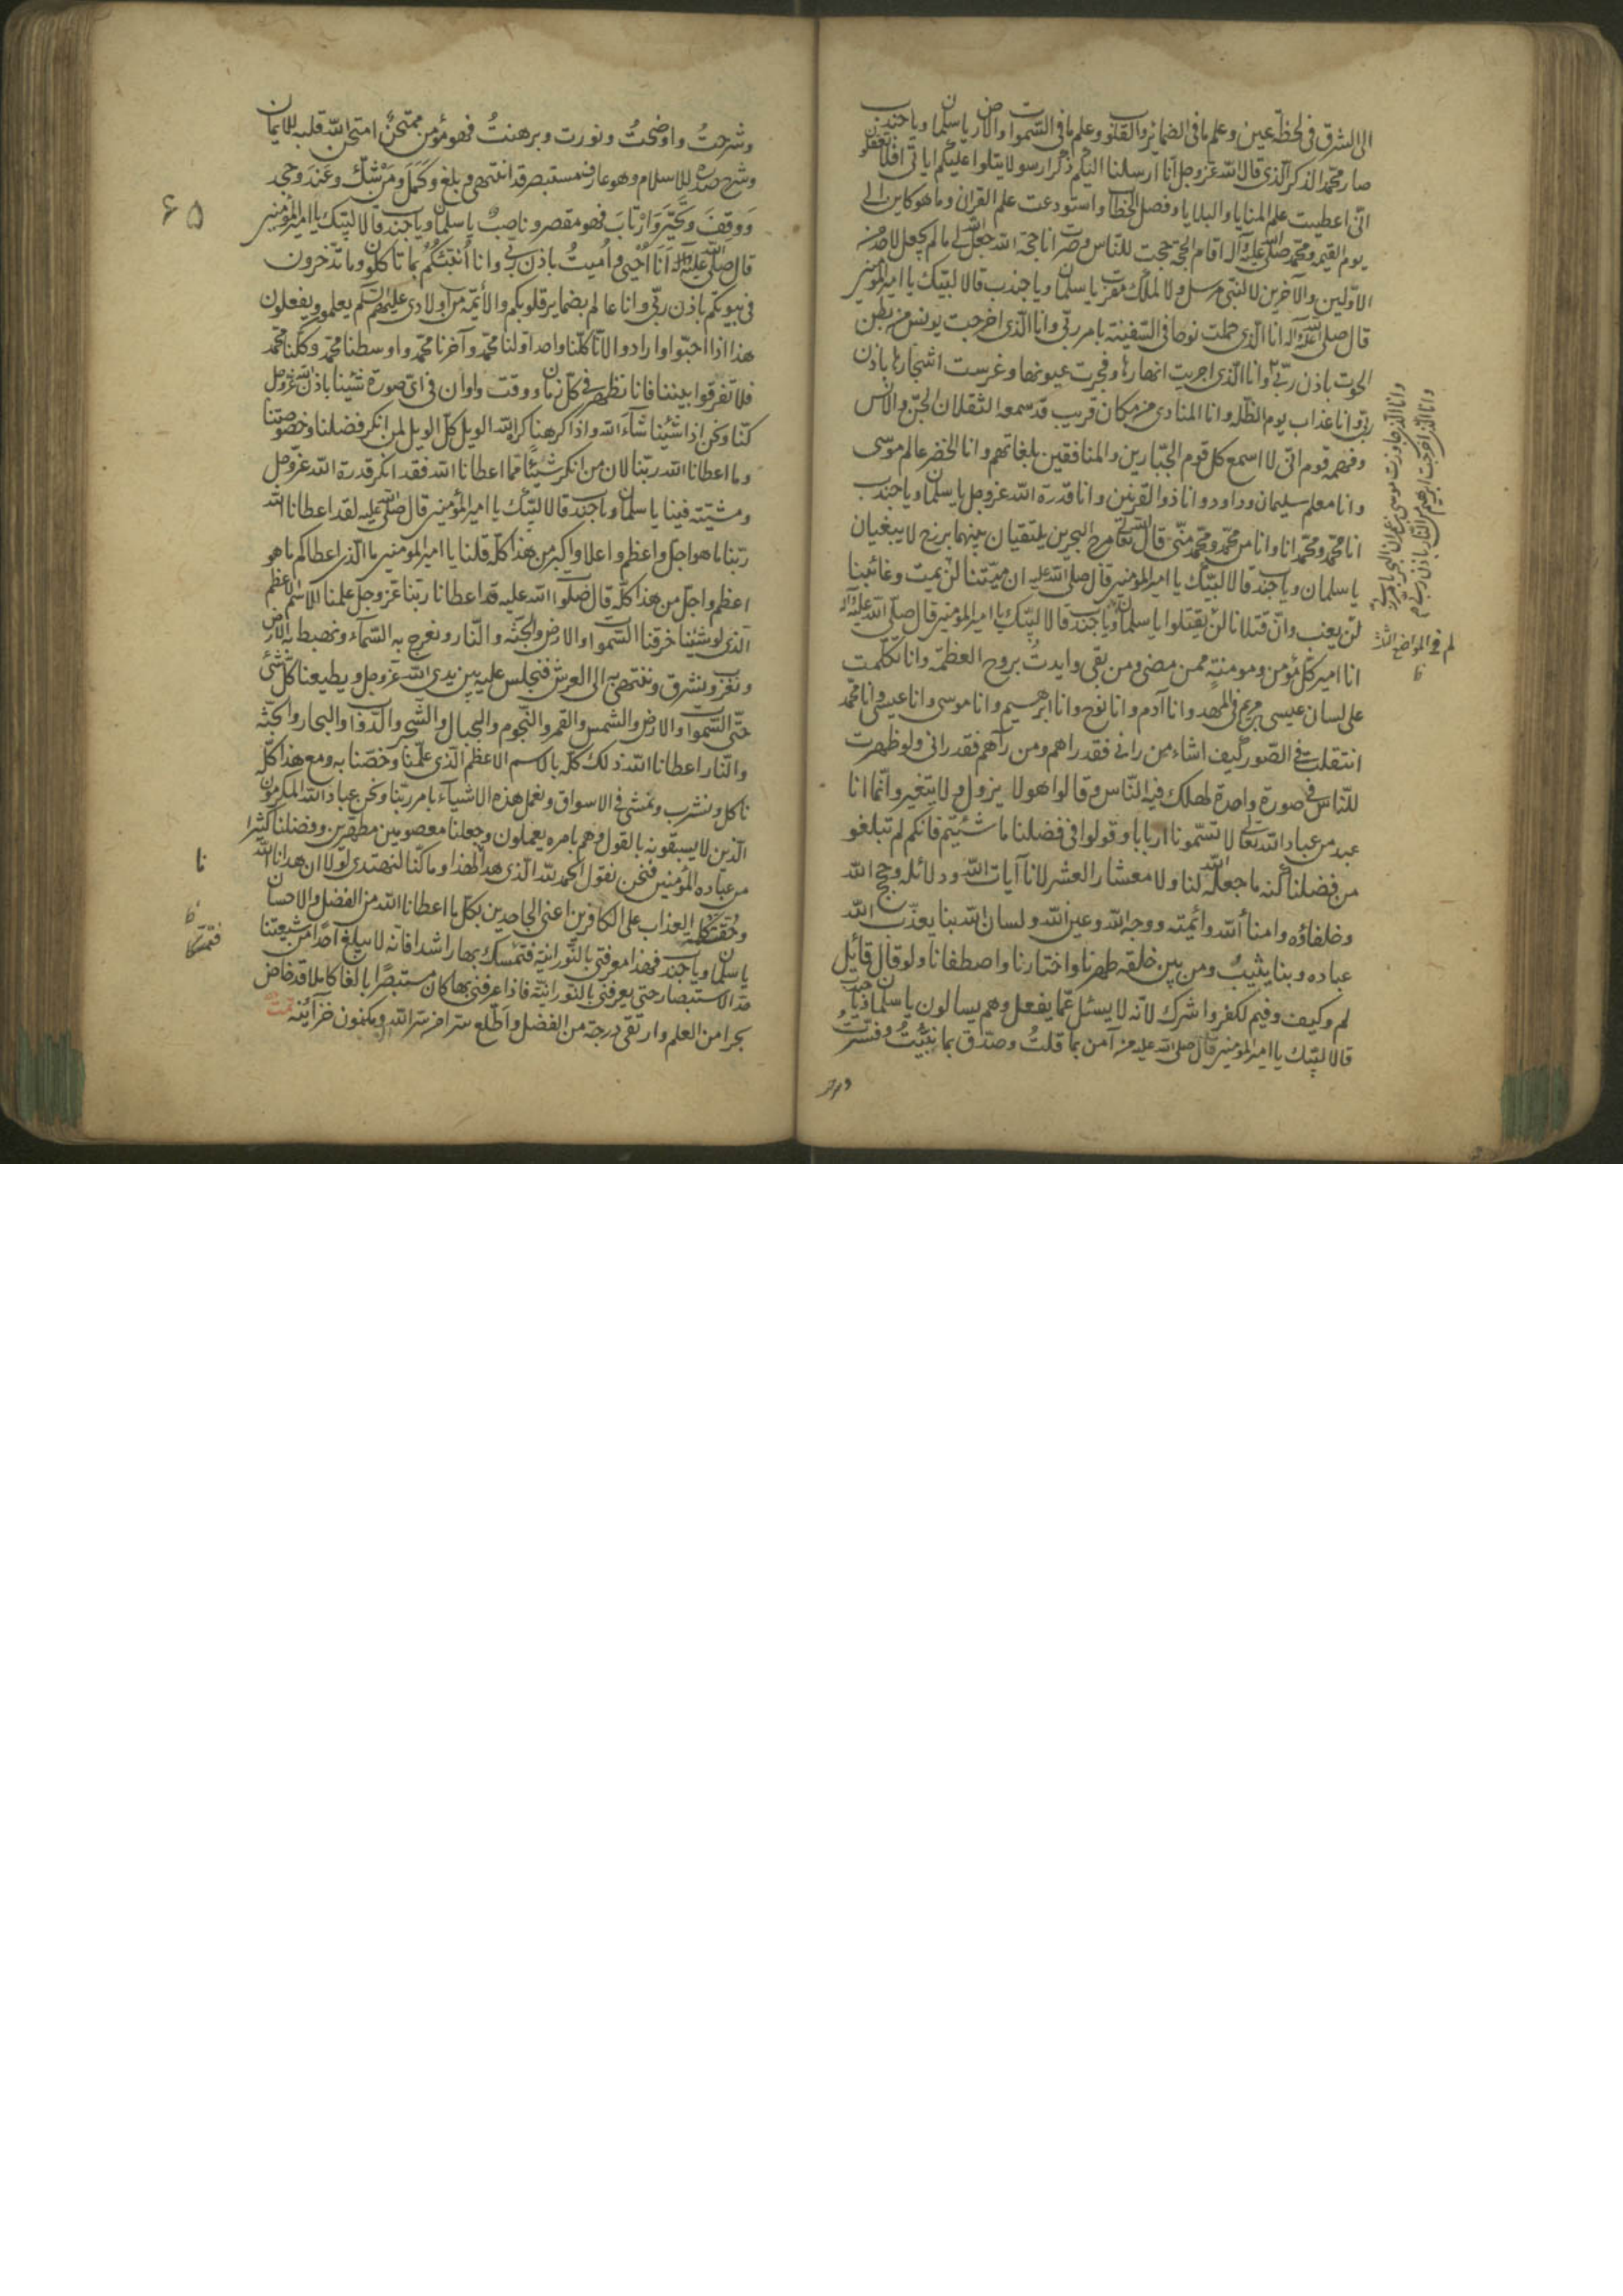 الى الشرق فى لحظة عين وعلم ما فى الضمائر والقلوب وعلم ما فى السموات والارض يا سلمان ويا جندب
صار محمد الذكر الذى قال الله عز وجل انا ارسلنا اليكم ذكرا رسولا يتلوا عليكم اياتى افلا تعقلون
انى اعطيت علم المنايا والبلايا وفصل الخطاب واستودعت علم القران وما هو كاين الى
يوم القيمه ومحمد صلى الله عليه وآله اقام الحجة حجت للناس وصرت انا حجة الله جعل الله لى ما لم يجعل لاحد من
الاولين والآخرين لا لنبى مرسل ولا لملك مقرب يا سلمان ويا جندب قالا لبيك يا امير المؤمنين
قال صلى الله عليه وآله انا الذى حملت نوحا فى السفينة بامر ربى وانا الذى اخرجت يونس من بطن
الحوت باذن ربى وانا الذى اجريت انهارها وفجرت عيونها وغرست اشجارها باذن
ربى وانا عذاب يوم الظلة وانا المنادى من مكان قريب قد سمعه الثقلان الجن والانس
وفهمه قوم انى لا اسمع كل قوم الجبارين والمنافقين بلغاتهم وانا الخضر عالم موسى
وانا معلم سليمان وداود وانا ذو القرنين وانا قدرة الله عز وجل يا سلمان ويا جندب
انا محمد ومحمد انا وانا من محمد ومحمد منى قال الله تعالى مرج البحرين يلتقيان بينهما برزخ لا يبغيان
يا سلمان ويا جندب قالا لبيك يا امير المؤمنين قال صلى الله عليه ان ميتنا لن يمت وغائبنا
لن يغب وان قتلانا لن يقتلوا يا سلمان ويا جندب قالا لبيك يا امير المؤمنين قال صلى الله عليه وآله
انا امير كل مؤمن ومومنة ممن مضى ومن بقى وايدت بروح العظمة وانا تكلمت
على لسان عيسى بن مريم فى المهد وانا آدم وانا نوح وانا ابرهيم وانا موسى وانا عيسى وانا محمد
انتقلت فى الصور كيف اشاء من رانى فقد راهم ومن رآهم فقد رانى ولو ظهرت
للناس فى صورة واحدة لهلك فيه الناس وقالوا هو لا يزول ولا يتغير وانما انا
عبد من عباد الله تعالى لا تسمونا اربابا وقولوا فى فضلنا ما شئتم فانكم لم تبلغوا
من فضلنا كنه ما جعله الله لنا ولا معشار العشر لانا آيات الله ودلائله وحجج الله
وخلفاؤه وامناء الله وائمته ووجه الله وعين الله ولسان الله بنا يعذب الله
عباده وبنا يثيب ومن بين خلقه طهرنا واختارنا واصطفانا ولو قال قائل
لم وكيف وفيم لكفر واشرك لانه لا يسئل عما يفعل وهم يسالون يا سلمان ويا جندب
قالا لبيك يا امير المؤمنين قال صلى الله عليه من آمن بما قلت وصدق بما بينت وفسرت
وانا الذى جاوزت موسى بن عمران البحر بامر ربى
وانا الذى اخرجت ابرهيم من النار باذن ربى
لم فى المواضع الثلث
ظ
وشرحت
وشرحت واوضحت ونورت وبرهنت فهو مؤمن ممتحن امتحن الله قلبه للايمان
وشرح صدره للاسلام وهو عارف مستبصر قد انتهى وبلغ وكمل ومن شك وعند وجحد
ووقف وتحير وارتاب فهو مقصر وناصب يا سلمان ويا جندب قالا لبيك يا امير المؤمنين
قال صلى الله عليه وآله انا احيى واميت باذن ربى وانا انبئكم بما تاكلون وما تدخرون
فى بيوتكم باذن ربى وانا عالم بضماير قلوبكم والأئمة من اولادى عليهم السلم يعلمون ويفعلون
هذا اذا احبوا وارادوا لانا كلنا واحد اولنا محمد وآخرنا محمد واوسطنا محمد وكلنا محمد
فلا تفرقوا بيننا فانا نظهر فى كل زمان ووقت واوان فى اى صورة شئنا باذن الله عز وجل
كنا ونحن اذا شئنا شآء الله واذا كرهنا كره الله الويل كل الويل لمن انكر فضلنا وخصوصيتنا
وما اعطانا الله ربنا لان من انكر شيئا مما اعطانا الله فقد انكر قدرة الله عز وجل
ومشيته فينا يا سلمان ويا جندب قالا لبيك يا امير المؤمنين قال صلى الله عليه لقد اعطانا الله
ربنا ما هو اجل واعظم واعلا واكبر من هذا كله قلنا يا امير المؤمنين ما الذى اعطاكم ما هو
اعظم واجل من هذا كله قال صلوات الله عليه قد اعطانا ربنا عز وجل علمنا الاسم الاعظم
الذى لو شئنا خرقنا السموات والارض والجنة والنار ونعرج به السمآء ونهبط به الارض
ونغرب ونشرق وننتهى به الى العرش فنجلس عليه بين يدى الله عز وجل ويطيعنا كل شئ
حتى السموات والارض والشمس والقمر والنجوم والجبال والشجر والدواب والبحار والجنة
والنار اعطانا الله ذلك كله بالاسم الاعظم الذى علمنا وخصنا به ومع هذا كله
ناكل ونشرب ونمشى فى الاسواق ونعمل هذه الاشيآء بامر ربنا ونحن عباد الله المكرمون
الذين لا يسبقونه بالقول وهم بامره يعملون وجعلنا معصومين مطهرين وفضلنا كثيرا
من عباده المؤمنين فنحن نقول الحمد لله الذى هدانا لهذا وما كنا لنهتدى لولا ان هدانا الله
وحقت كلمة العذاب على الكافرين اعنى الجاحدين بكل ما اعطانا الله من الفضل والاحسان
يا سلمان ويا جندب فهذا معرفتى بالنورانية فتمسك بها راشدا فانه لا يبلغ احدا من شيعتنا
حد الاستبصار حتى يعرفنى بالنورانية فاذا عرفنى بها كان مستبصرا بالغا كاملا قد خاض
بحرا من العلم وارتقى درجة من الفضل واطلع سرا من سر الله ومكنون خزآئنه تمت
۶۵
نا
ظ
فتمسكا